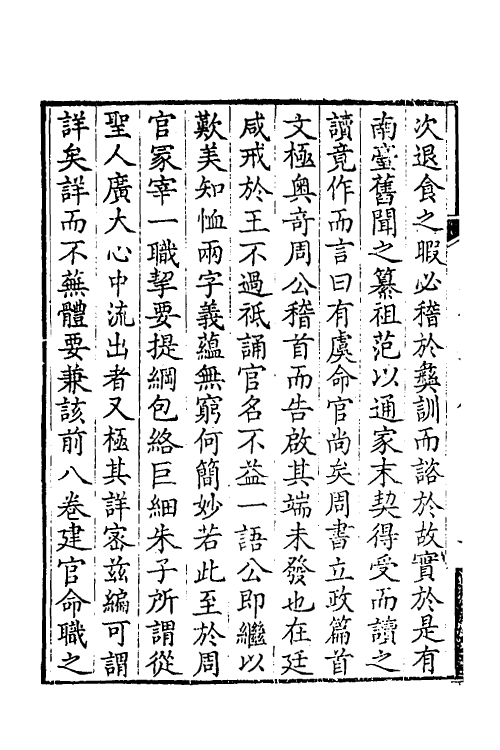 次退食之暇必稽於彞訓而諮於故實於是有
南臺舊聞之纂祖范以通家末契得受而讀之
讀竟作而言曰有虞命官尚矣周書立政篇首
文極奥竒周公稽首而告啟其端未發也在廷
咸戒於王不過祗誦官名不益一語公即繼以
歎美知恤兩字義蘊無窮何簡妙若此至於周
官冢宰一職挈要提綱包絡巨細朱子所謂從
聖人廣大心中流出者又極其詳宻兹編可謂
詳矣詳而不蕪體要兼該前八卷建官命職之